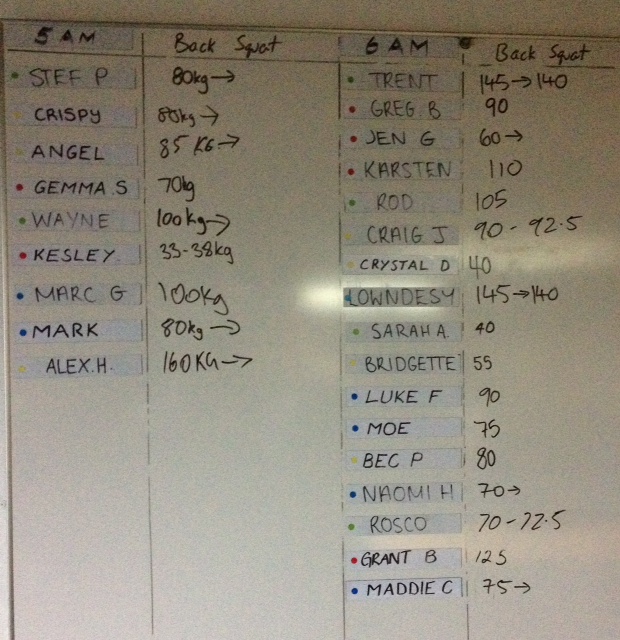 5 AM Back Squat
STEF P 80kg→
CRISPY 80kg→
ANGEL 85 KG→
GEMMA.S 70kg
WAYNE 100kg→
KESLEY 33-38kg
MARC G 100kg
MARK 80kg→
ALEX.H. 160KG→
6 AM Back Squat
TRENT 145→140
GREG.B 90
JEN G 60→
KARSTEN 110
ROD 105
CRAIG J 90-92.5
CRYSTAL D 40
LOWNDESY 145→140
SARAH A. 40
BRIDGETTE 55
LUKE F 90
MOE 75
BEC P 80
NAOMI H 70→
ROSCO 70-72.5
GRANT B 125
MADDIE C 75→